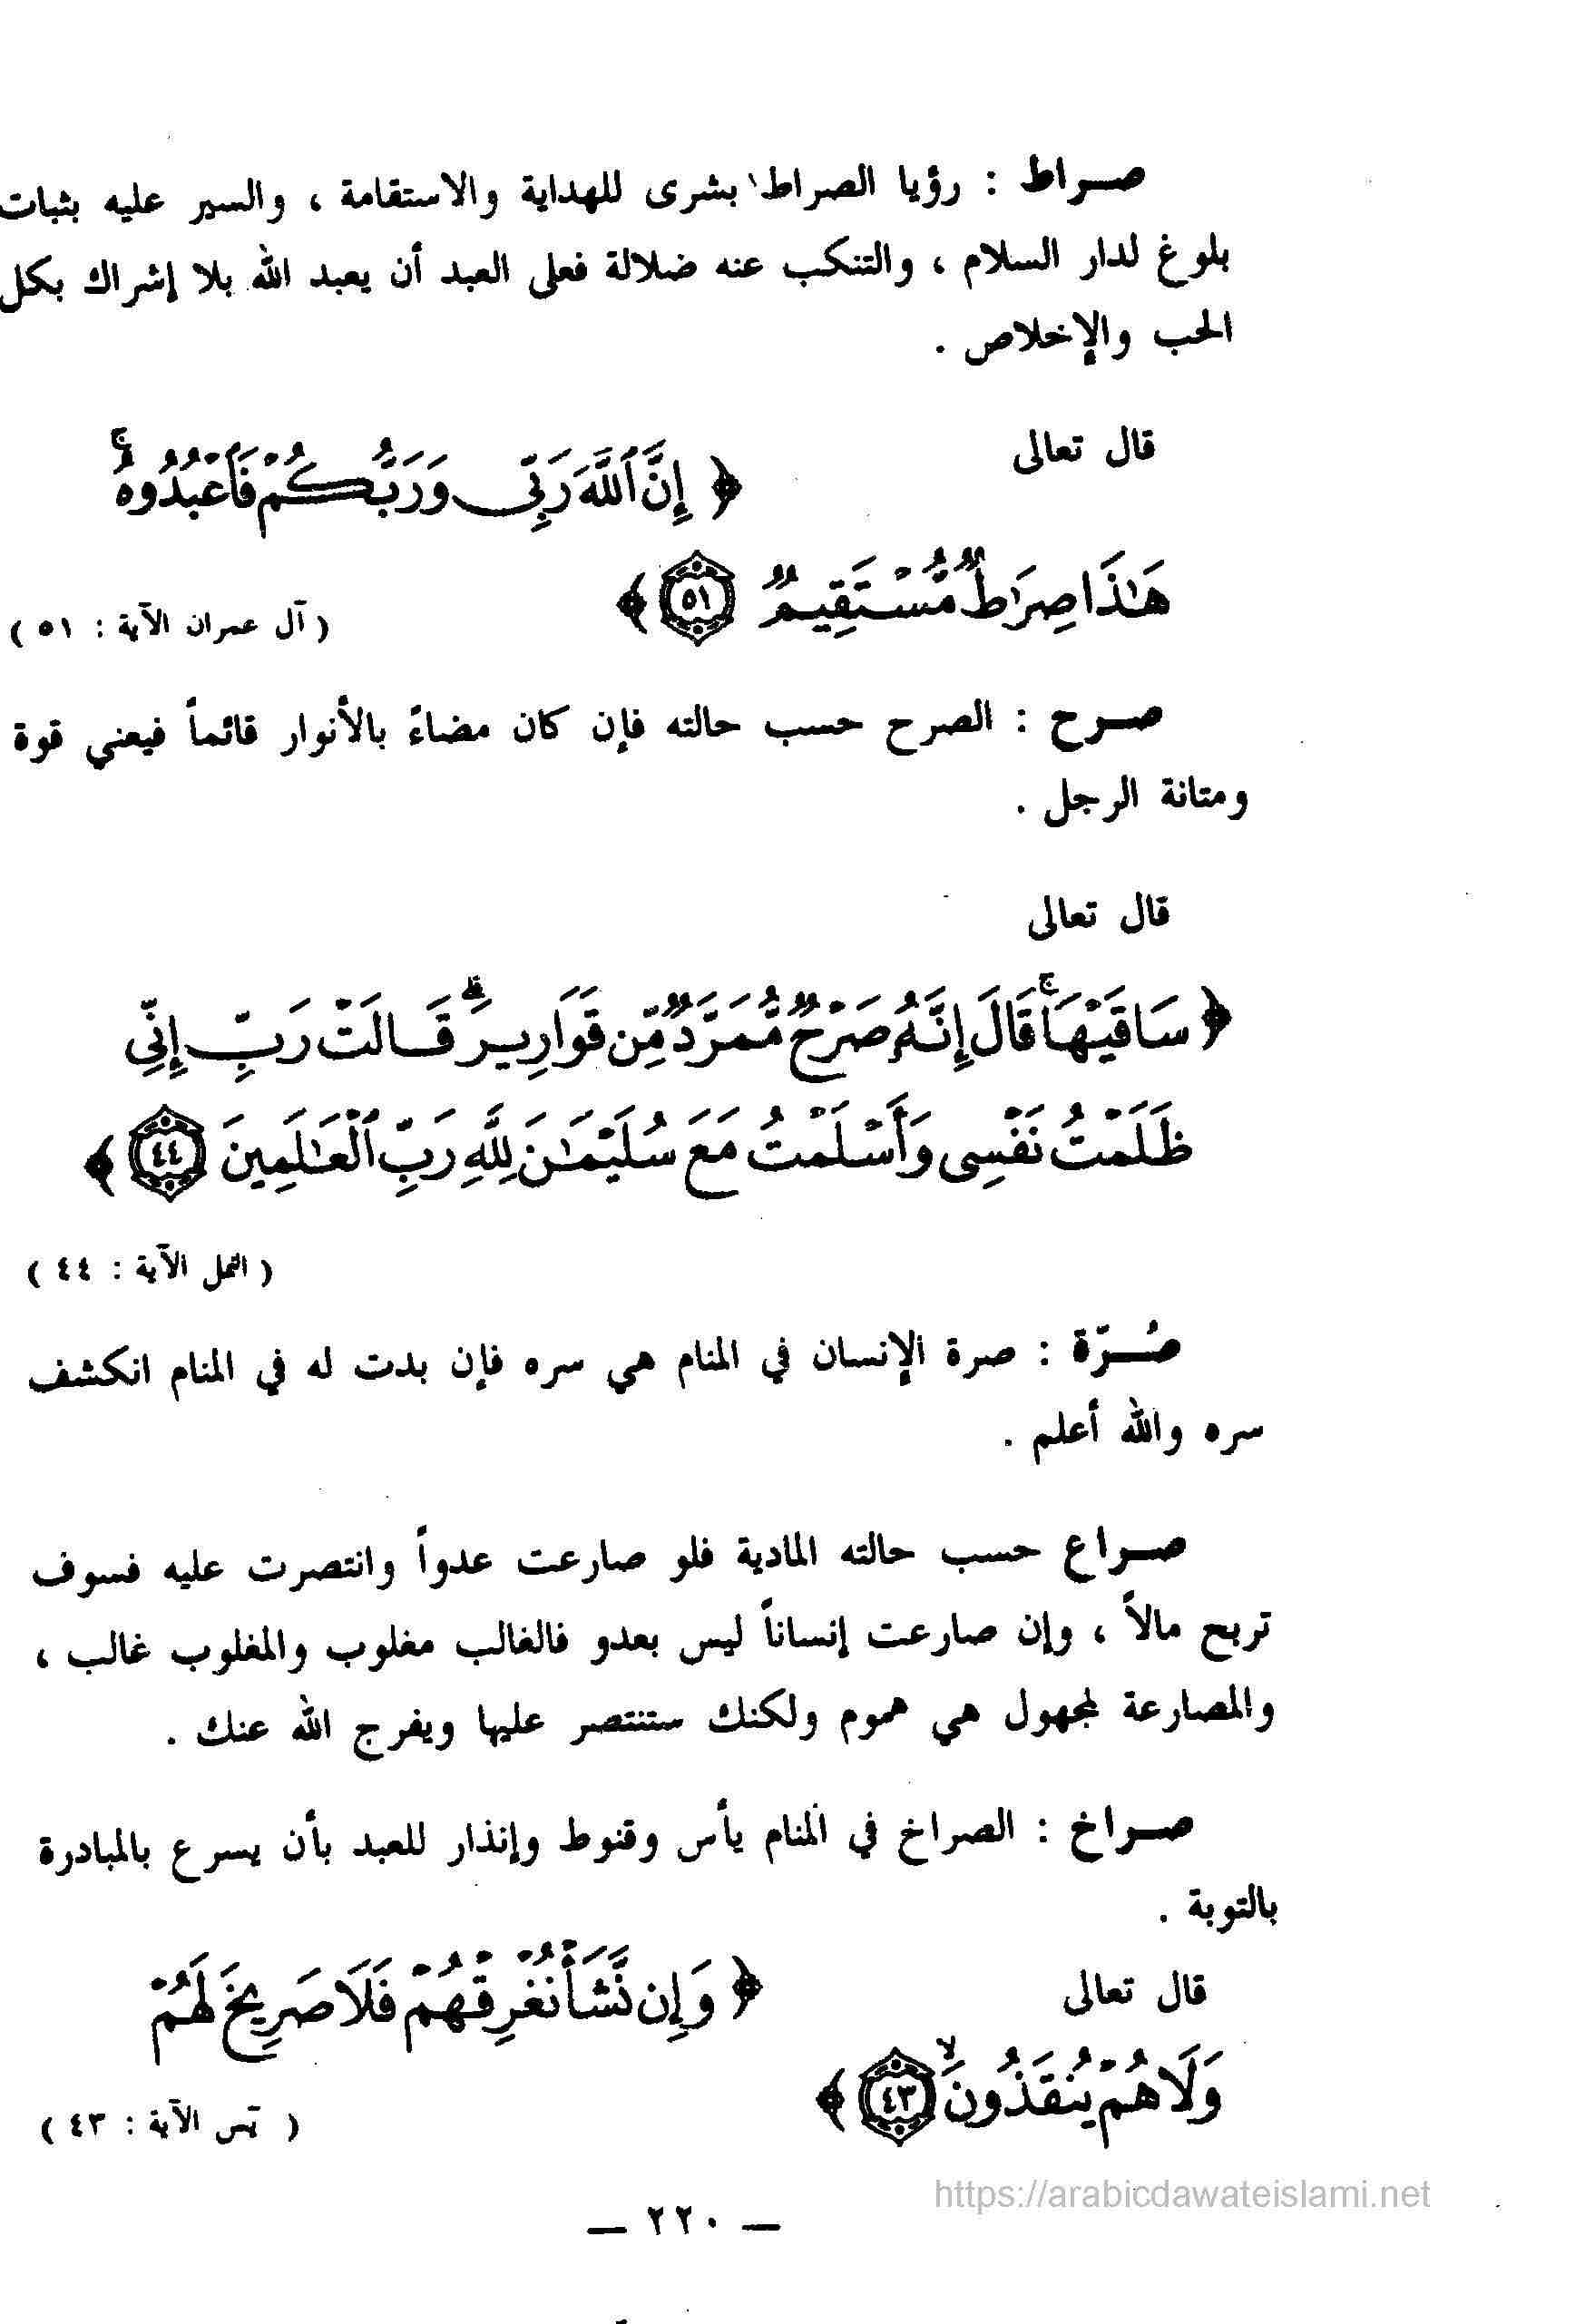 صـراط : رؤيا الصراط بشرى للهداية والاستقامة ، والسير عليه بثبات
بلوغ لدار السلام ، والتنكب عنه ضلالة فعلى العبد أن يعبد الله بلا إشراك بكل
الحب والإخلاص .
قال تعالى ﴿ إِنَّ ٱللَّهَ رَبِّى وَرَبُّكُمْ فَٱعْبُدُوهُ ۚ
هَـٰذَا صِرَٰطٌ مُّسْتَقِيمٌ ٥١ ﴾ ( آل عمران الآية : ٥١ )
صـرح : الصرح حسب حالته فإن كان مضاءً بالأنوار قائماً فيعني قوة
ومتانة الرجل .
قال تعالى
﴿ سَاقَيْهَا ۚ قَالَ إِنَّهُۥ صَرْحٌ مُّمَرَّدٌ مِّن قَوَارِيرَ ۗ قَالَتْ رَبِّ إِنِّى
ظَلَمْتُ نَفْسِى وَأَسْلَمْتُ مَعَ سُلَيْمَـٰنَ لِلَّهِ رَبِّ ٱلْعَـٰلَمِينَ ٤٤ ﴾
( النمل الآية : ٤٤ )
صُـرّة : صرة الإنسان في المنام هي سره فإن بدت له في المنام انكشف
سره والله أعلم .
صـراع حسب حالته المادية فلو صارعت عدواً وانتصرت عليه فسوف
تربح مالاً ، وإن صارعت إنساناً ليس بعدو فالغالب مغلوب والمغلوب غالب ،
والمصارعة لمجهول هي هموم ولكنك ستنتصر عليها ويفرج الله عنك .
صـراخ : الصراخ في المنام يأس وقنوط وإنذار للعبد بأن يسرع بالمبادرة
بالتوبة .
قال تعالى ﴿ وَإِن نَّشَأْ نُغْرِقْهُمْ فَلَا صَرِيخَ لَهُمْ
وَلَا هُمْ يُنقَذُونَ ۙ ٤٣ ﴾ ( يَس الآية : ٤٣ )
https://arabicdawateislami.net
— ٢٢٠ —